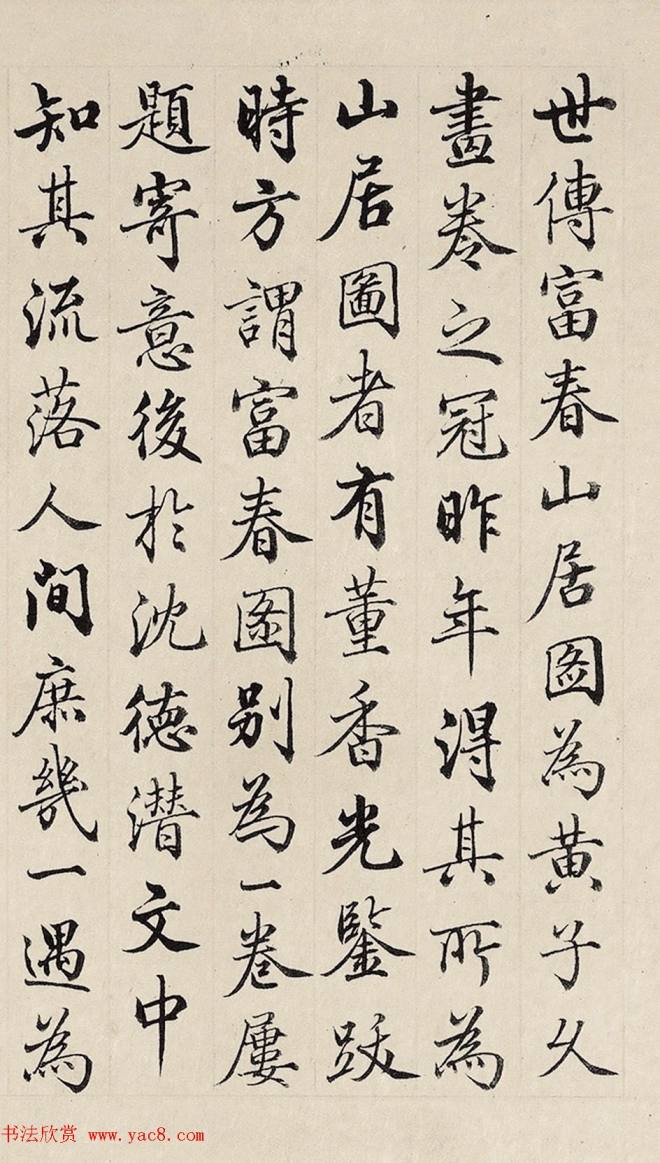 世傳富春山居圖為黃子久
畫卷之冠昨年得其所為
山居圖者有董香光鑒跋
時方謂富春圖别為一卷屢
題寄意後於沈德潜文中
知其流落人間庶幾一遇為
书法欣赏 www.yac8.com